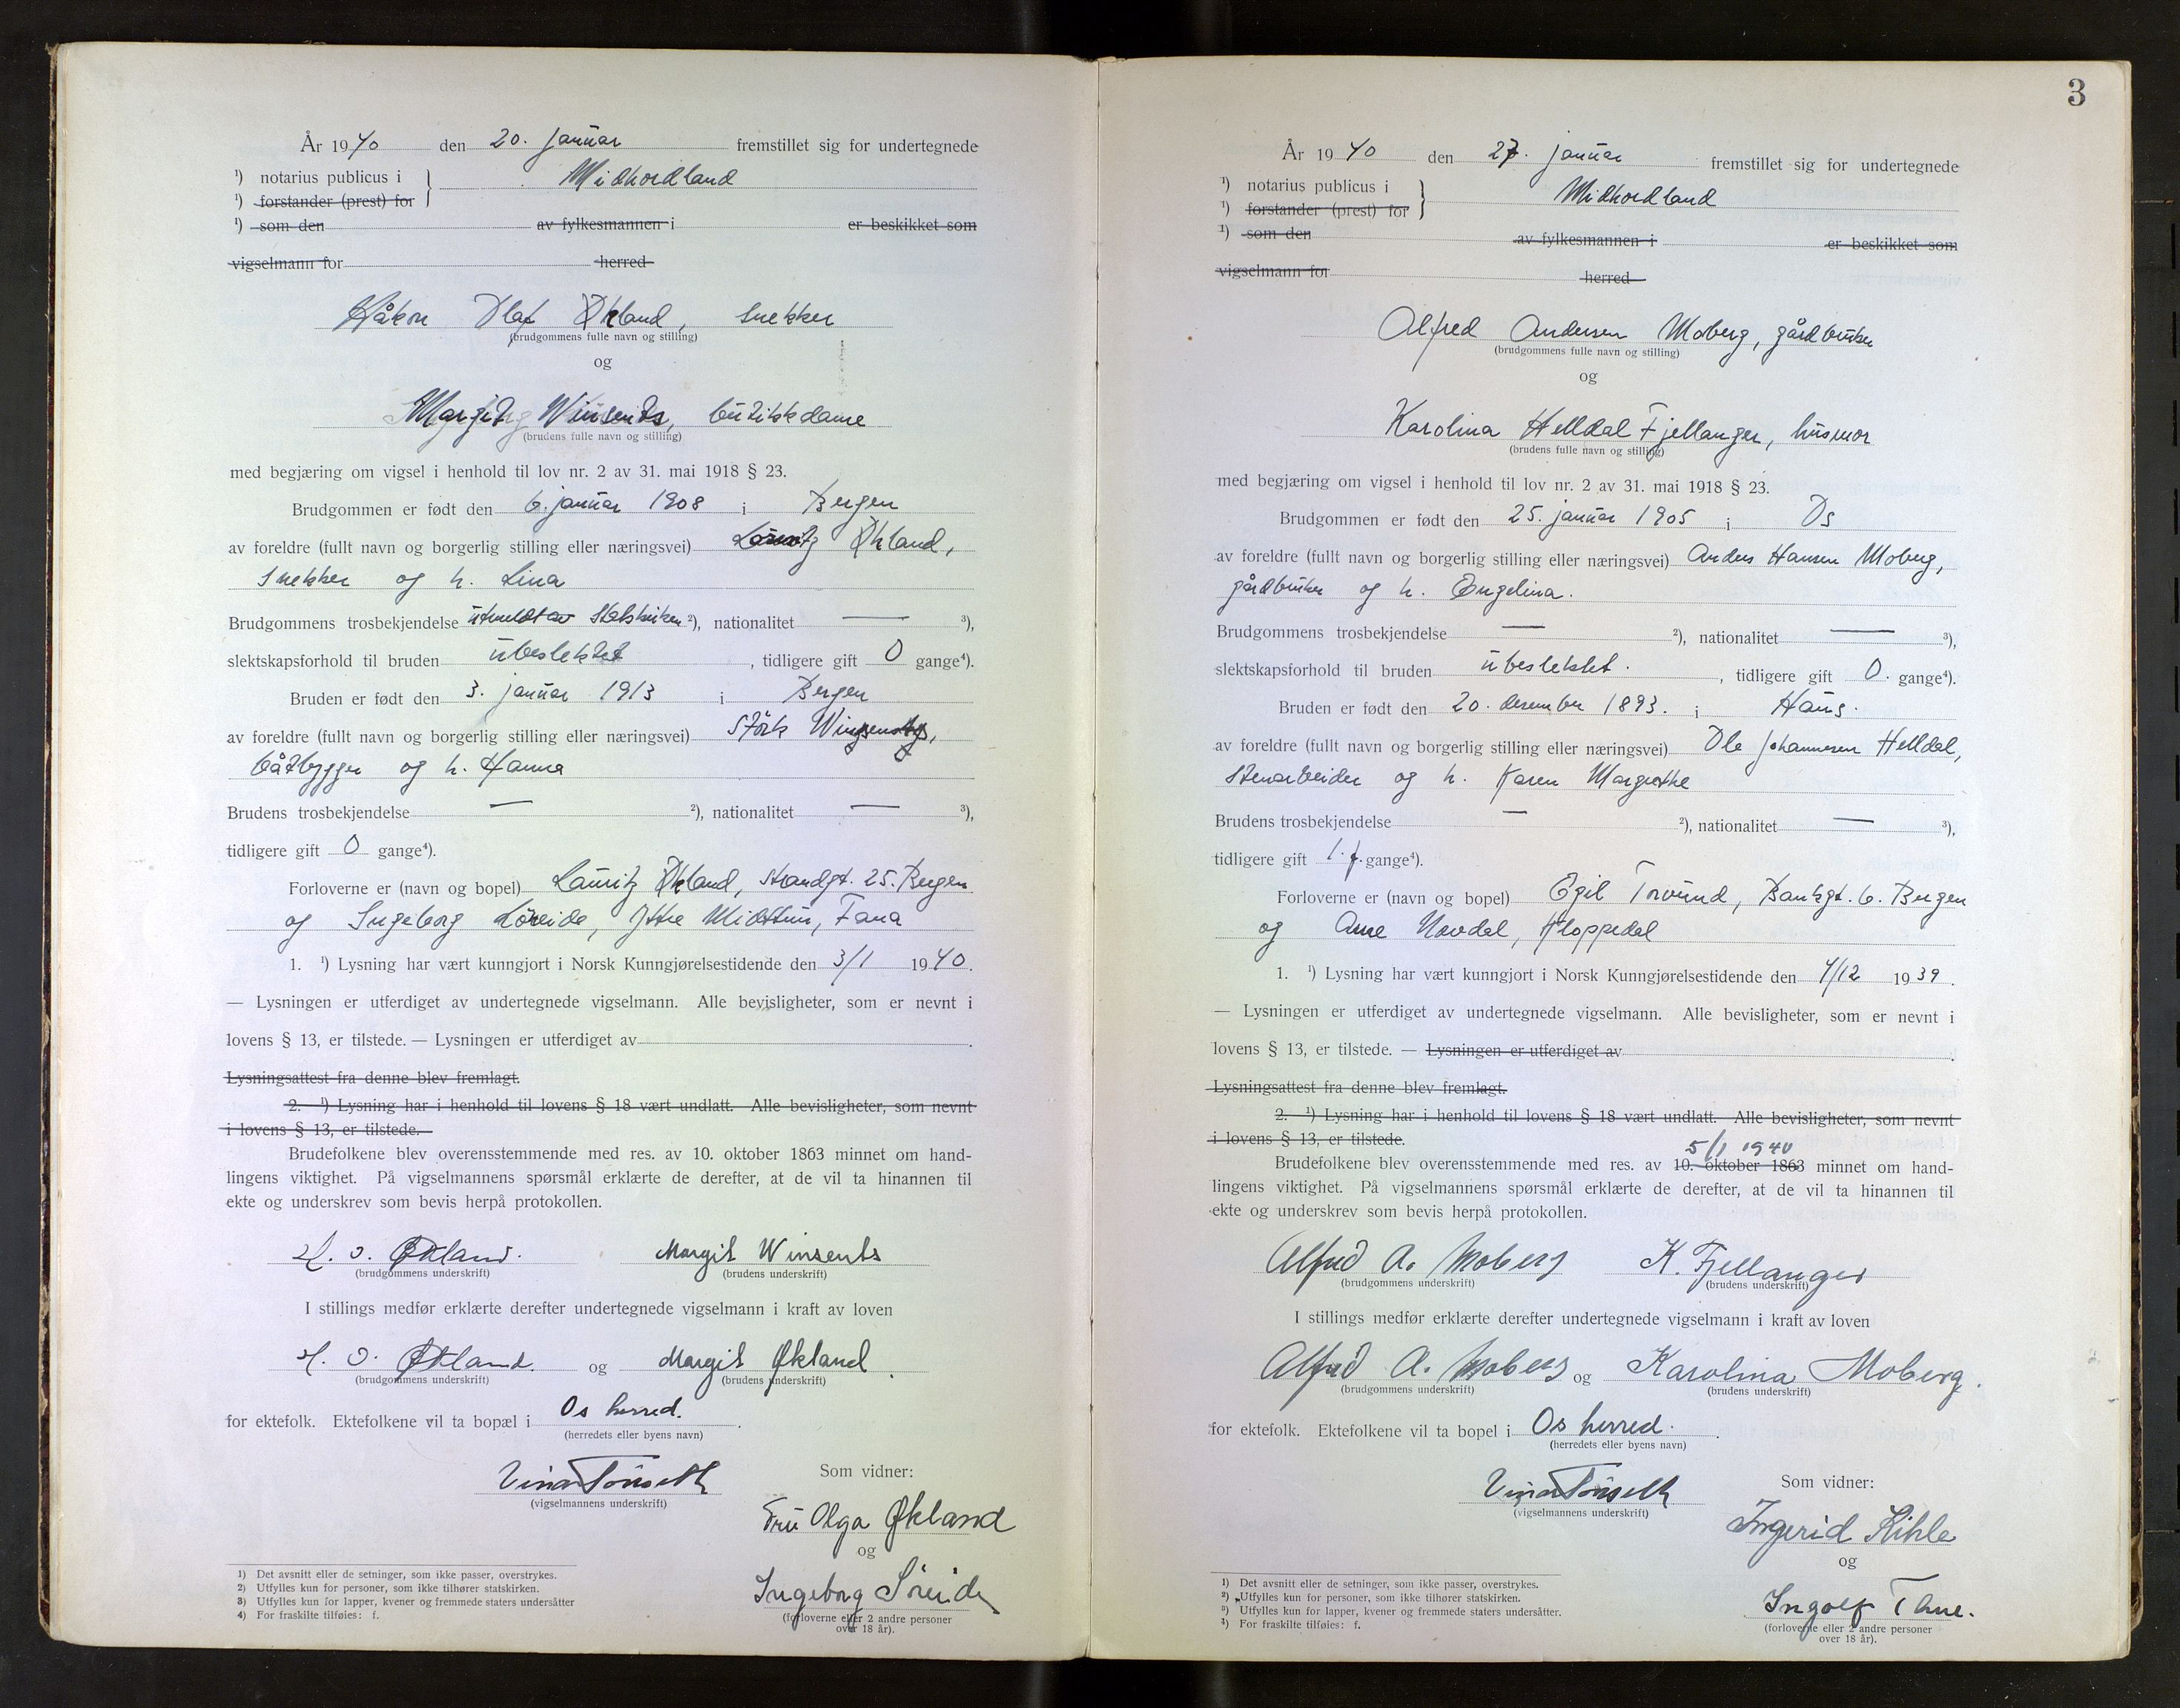 År 1940 den 20. januar fremstillet sig for undertegnede
¹) notarius publicus i } Midhordland
¹) forstander (prest) for
¹) som den av fylkesmannen i er beskikket som
vigselmann for herred
Håkon Olaf Økland, snekker
(brudgommens fulle navn og stilling)
og
Margit Winsents, butikkdame
(brudens fulle navn og stilling)
med begjæring om vigsel i henhold til lov nr. 2 av 31. mai 1918 § 23.
Brudgommen er født den 6. januar 1908 i Bergen
av foreldre (fullt navn og borgerlig stilling eller næringsvei) Lauritz Økland,
snekker og h. Lina
Brudgommens trosbekjendelse utmeldt av statskirken ²), nationalitet — ³),
slektskapsforhold til bruden ubeslektet, tidligere gift 0 gange⁴).
Bruden er født den 3. januar 1913 i Bergen
av foreldre (fullt navn og borgerlig stilling eller næringsvei) Störk
båtbygger og h. Hanna
Brudens trosbekjendelse — ²), nationalitet — ³),
tidligere gift 0 gange⁴).
Forloverne er (navn og bopel) Lauritz Økland, Strandgt. 25. Bergen
og Ingeborg Søreide, Ytre Midttun, Fana
1. ¹) Lysning har vært kunngjort i Norsk Kunngjørelsestidende den 3/1 1940.
— Lysningen er utferdiget av undertegnede vigselmann. Alle bevisligheter, som er nevnt i
lovens § 13, er tilstede. — Lysningen er utferdiget av .
Lysningsattest fra denne blev fremlagt.
2. ¹) Lysning har i henhold til lovens § 18 vært undlatt. Alle bevisligheter, som nevnt
i lovens § 13, er tilstede.
Brudefolkene blev overensstemmende med res. av 10. oktober 1863 minnet om hand-
lingens viktighet. På vigselmannens spørsmål erklærte de derefter, at de vil ta hinannen til
ekte og underskrev som bevis herpå protokollen.
H. O. Økland. Margit Winsents
(brudgommens underskrift) (brudens underskrift)
I stillings medfør erklærte derefter undertegnede vigselmann i kraft av loven
H. O. Økland. og Margit Økland.
(brudgommens underskrift) (brudens underskrift)
for ektefolk. Ektefolkene vil ta bopæl i Os herred.
(herredets eller byens navn)
Som vidner:
(vigselmannens underskrift)
Fru Olga Økland
og
Ingeborg Søreide
(forloverne eller 2 andre personer
over 18 år).
1) Det avsnitt eller de setninger, som ikke passer, overstrykes.
2) Utfylles kun for personer, som ikke tilhører statskirken.
3) Utfylles kun for lapper, kvener og fremmede staters undersåtter
4) For fraskilte tilføies: f.
3
År 1940 den 27. januar fremstillet sig for undertegnede
¹) notarius publicus i } Midhordland
¹) forstander (prest) for
¹) som den av fylkesmannen i er beskikket som
vigselmann for herred
Alfred Andersen Moberg, gårdbruker
(brudgommens fulle navn og stilling)
og
Karolina Helldal Fjellanger, husmor
(brudens fulle navn og stilling)
med begjæring om vigsel i henhold til lov nr. 2 av 31. mai 1918 § 23.
Brudgommen er født den 25. januar 1905 i Os
av foreldre (fullt navn og borgerlig stilling eller næringsvei) Anders Hansen Moberg,
gårdbruker og h. Engelina.
Brudgommens trosbekjendelse — ²), nationalitet — ³),
slektskapsforhold til bruden ubeslektet. , tidligere gift 0. gange⁴).
Bruden er født den 20. desember 1893. i Haus.
av foreldre (fullt navn og borgerlig stilling eller næringsvei) Ole Johannesen Helldal,
stenarbeider og h. Karen Margrethe
Brudens trosbekjendelse — ²), nationalitet — ³),
tidligere gift 1. f. gange⁴).
Forloverne er (navn og bopel) Egil Trovund, Bankgt. 6. Bergen
og Arne Novdal, Hoppedal
1. ¹) Lysning har vært kunngjort i Norsk Kunngjørelsestidende den 4/12 1939.
— Lysningen er utferdiget av undertegnede vigselmann. Alle bevisligheter, som er nevnt i
lovens § 13, er tilstede. — Lysningen er utferdiget av .
Lysningsattest fra denne blev fremlagt.
2. ¹) Lysning har i henhold til lovens § 18 vært undlatt. Alle bevisligheter, som nevnt
i lovens § 13, er tilstede.
5/1 1940
Brudefolkene blev overensstemmende med res. av 10. oktober 1863 minnet om hand-
lingens viktighet. På vigselmannens spørsmål erklærte de derefter, at de vil ta hinannen til
ekte og underskrev som bevis herpå protokollen.
Alfred A. Moberg K. Fjellanger
(brudgommens underskrift) (brudens underskrift)
I stillings medfør erklærte derefter undertegnede vigselmann i kraft av loven
Alfred A. Moberg og Karolina Moberg.
(brudgommens underskrift) (brudens underskrift)
for ektefolk. Ektefolkene vil ta bopel i Os herred.
(herredets eller byens navn)
Som vidner:
(vigselmannens underskrift)
Ingerid Kihle
og
Ingolf Thue.
(forloverne eller 2 andre personer
over 18 år).
¹) Det avsnitt eller de setninger, som ikke passer, overstrykes.
²) Utfylles kun for personer, som ikke tilhører statskirken.
³) Utfylles kun for lapper, kvener og fremmede staters undersåtter.
⁴) For fraskilte tilføies: f.